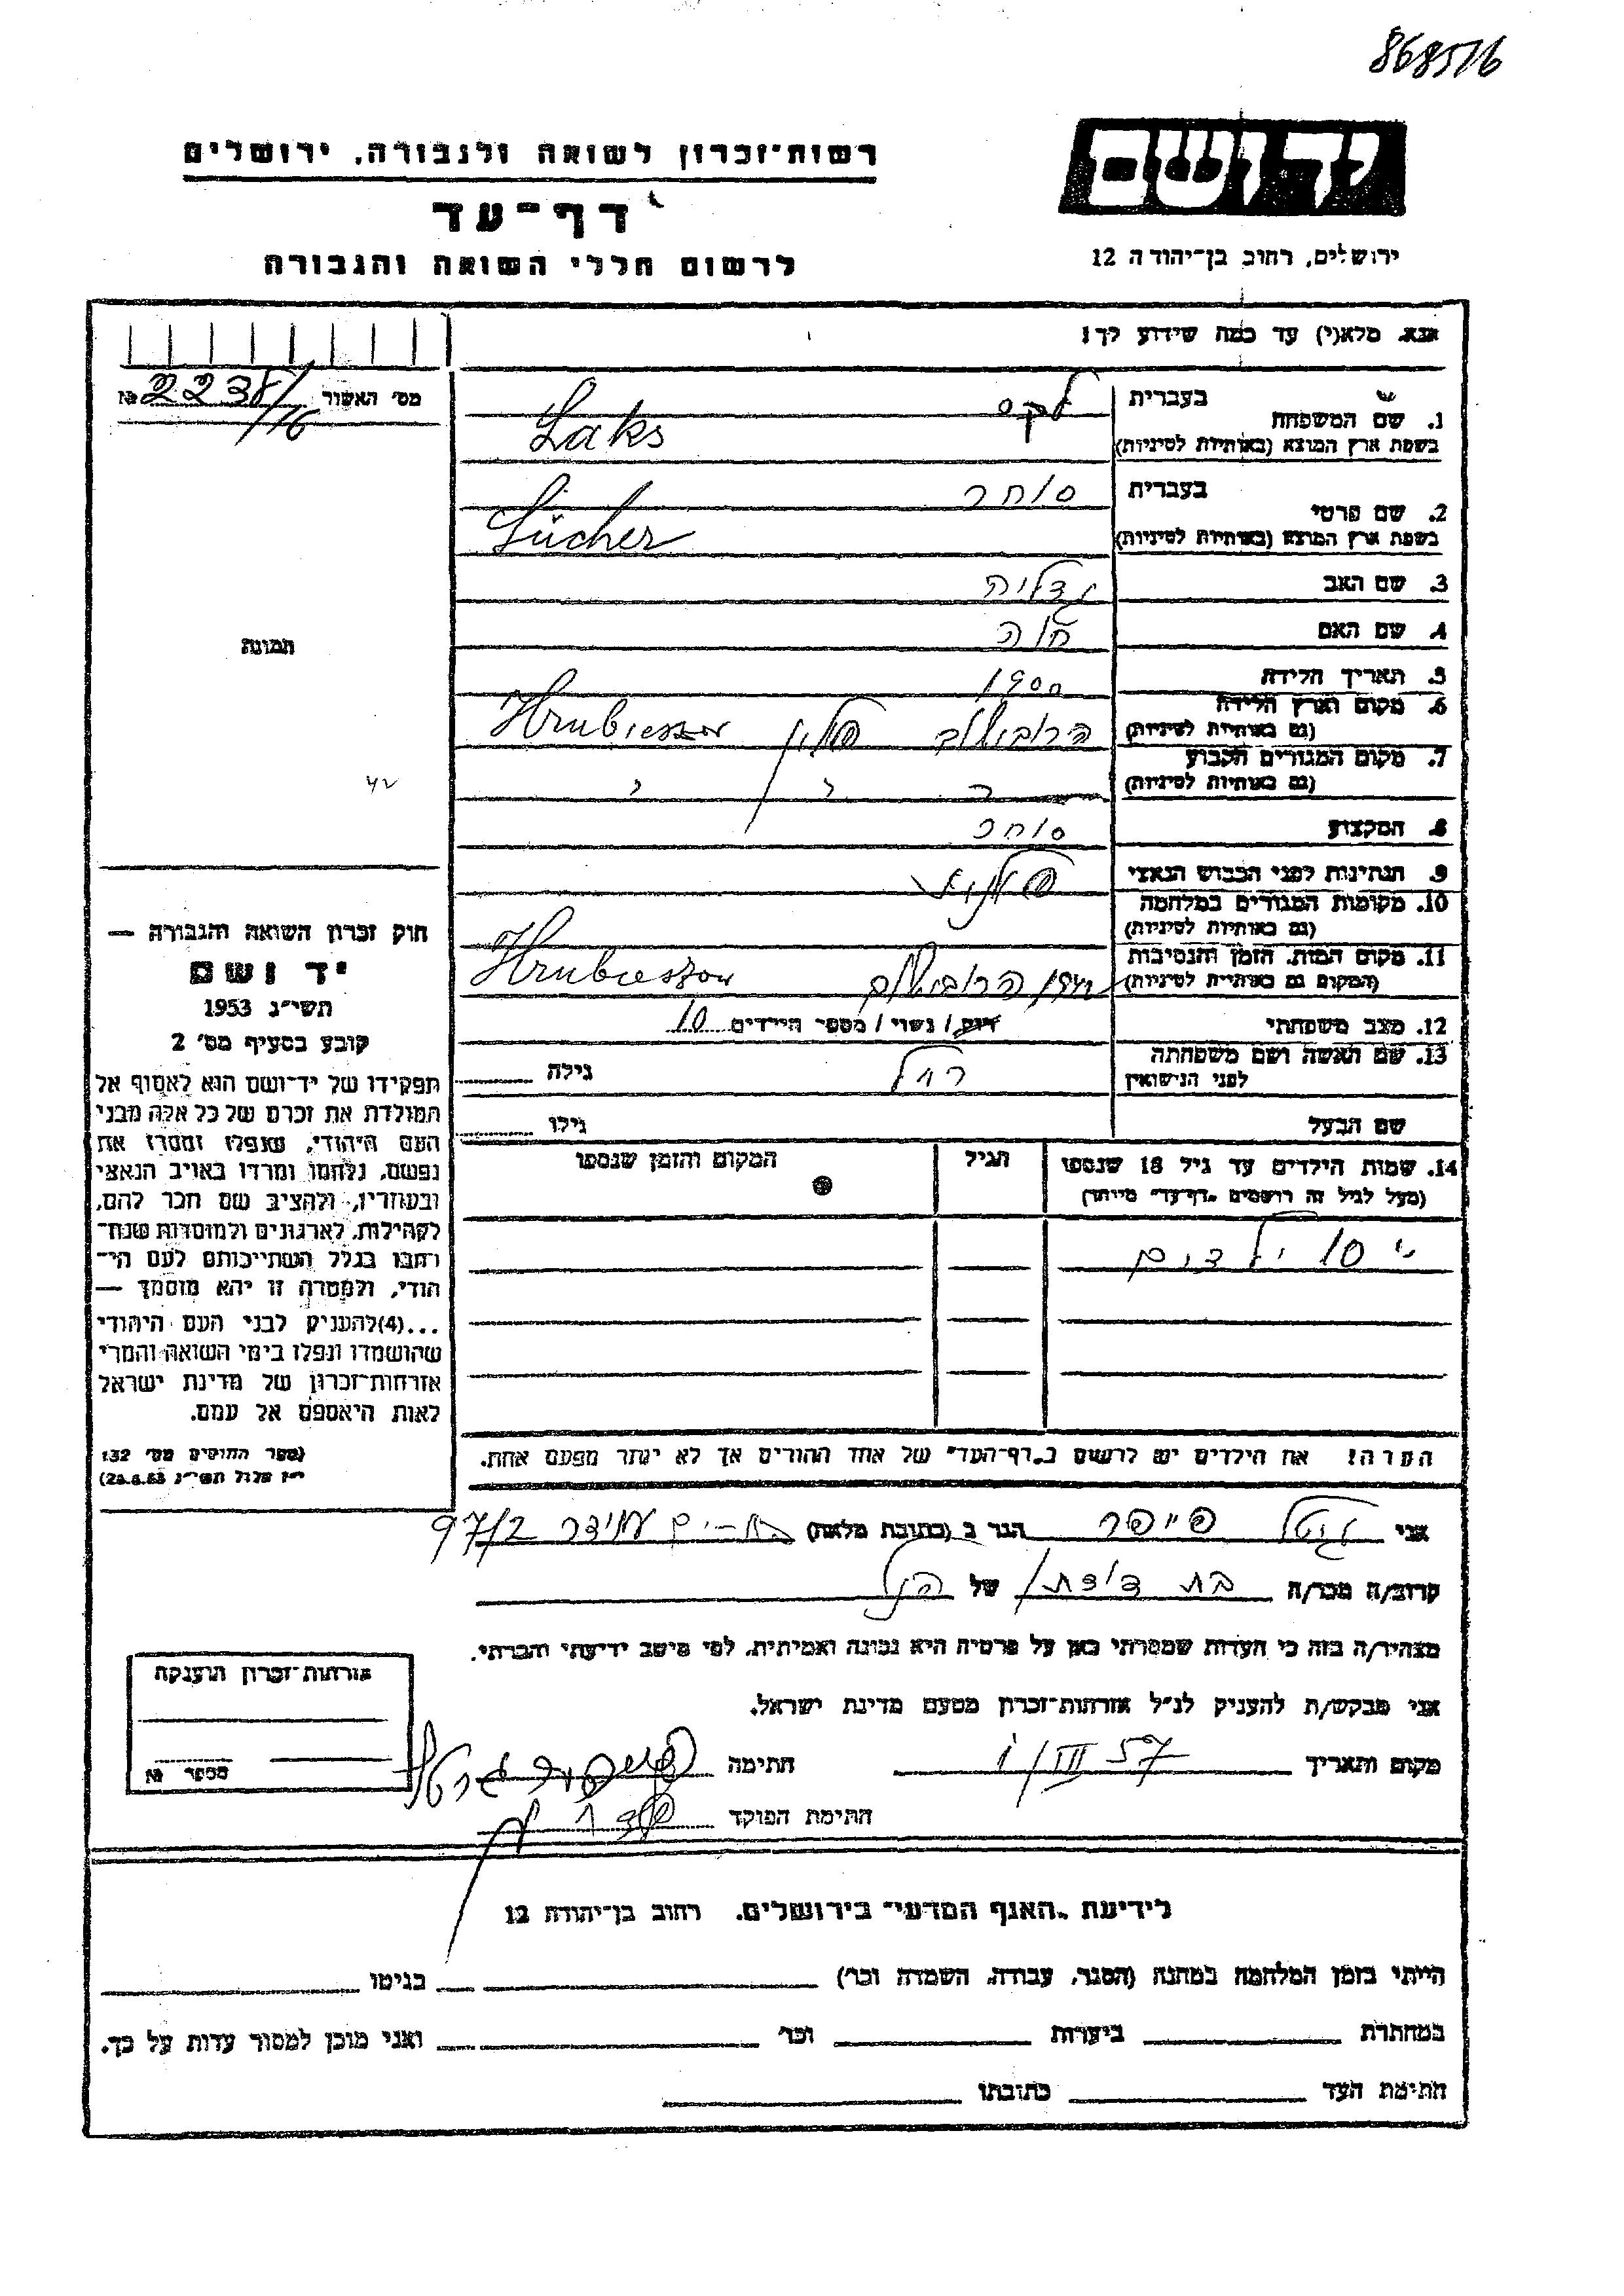 868516
יד ושם
רשות-זכרון לשואה ולגבורה, ירושלים
דף-עד
לרשום חללי השואה והגבורה
ירושלים, רחוב בן-יהודה 12
אנא, מלא(י) עד כמה שידוע לך!
מס' האשור № 2238/16
1. שם המשפחה בעברית לקס
בשפת ארץ המוצא (באותיות לטיניות) Laks
2. שם פרטי בעברית סוחר
בשפת ארץ המוצא (באותיות לטיניות) Sücher
3. שם האב גדליה
4. שם האם חוה
5. תאריך הלידה 1900
6. מקום וארץ הלידה
(גם באותיות לטיניות) הרובישוב פולין Hrubieszow
7. מקום המגורים הקבוע
(גם באותיות לטיניות) " " "
8. המקצוע סוחר
9. הנתינות לפני הכבוש הנאצי פולנית
10. מקומות המגורים במלחמה
(גם באותיות לטיניות)
11. מקום המות, הזמן והנסיבות
(המקום גם באותיות לטיניות) הרובישוב Hrubieszow
12. מצב משפחתי רוק / נשוי / מספר הילדים 10
13. שם האשה ושם משפחתה
לפני הנישואין רחל גילה
שם הבעל גילו
14. שמות הילדים עד גיל 18 שנספו הגיל המקום והזמן שנספו
(מעל לגיל זה רושמים "דף-עד" מיוחד)
10 ילדים
הערה! את הילדים יש לרשום ב"דף-העד" של אחד ההורים אך לא יותר מפעם אחת.
תמונה
חוק זכרון השואה והגבורה —
יד ושם
תשי"ג 1953
קובע בסעיף מס' 2
תפקידו של יד-ושם הוא לאסוף אל
המולדת את זכרם של כל אלה מבני
העם היהודי, שנפלו ומסרו את
נפשם, נלחמו ומרדו באויב הנאצי
ובעוזריו, ולהציב שם וזכר להם,
לקהילות, לארגונים ולמוסדות שנח-
רבו בגלל השתייכותם לעם הי-
הודי, ולמטרה זו יהא מוסמך —
...(4) להעניק לבני העם היהודי
שהושמדו ונפלו בימי השואה והמרי
אזרחות-זכרון של מדינת ישראל
לאות היאספם אל עמם.
(ספר החוקים מס' 132
י"ז אלול תשי"ג 28.8.53)
אני גיטל פייפר הגר ב (כתובת מלאה) בת-ים עמידר 97/2
קרוב/ה מכר/ה בת דודתו של הנ"ל
מצהיר/ה בזה כי העדות שמסרתי כאן על פרטיה היא נכונה ואמיתית, לפי מיטב ידיעתי והכרתי.
אני מבקש/ת להעניק לנ"ל אזרחות-זכרון מטעם מדינת ישראל.
מקום ותאריך 1/III 57 חתימה
חתימת הפוקד
אזרחות-זכרון הוענקה
מספר №
לידיעת "האגף המדעי" בירושלים. רחוב בן-יהודה 12
הייתי בזמן המלחמה במחנה (הסגר, עבודה, השמדה וכו') בגיטו
במחתרת ביערות וכו' ואני מוכן למסור עדות על כך.
חתימת העד כתובתו